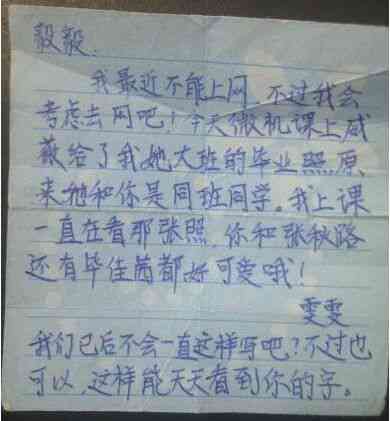 毅毅:
我最近不能上网,不过我会
考虑去网吧!今天微机课上戚
薇给了我她大班的毕业照原
来她和你是同班同学。我上课
一直在看那张照,你和张秋路
还有毕佳茵都好可爱哦!
雯雯
我们已后不会一直这样写吧?不过也
可以,这样能天天看到你的字。